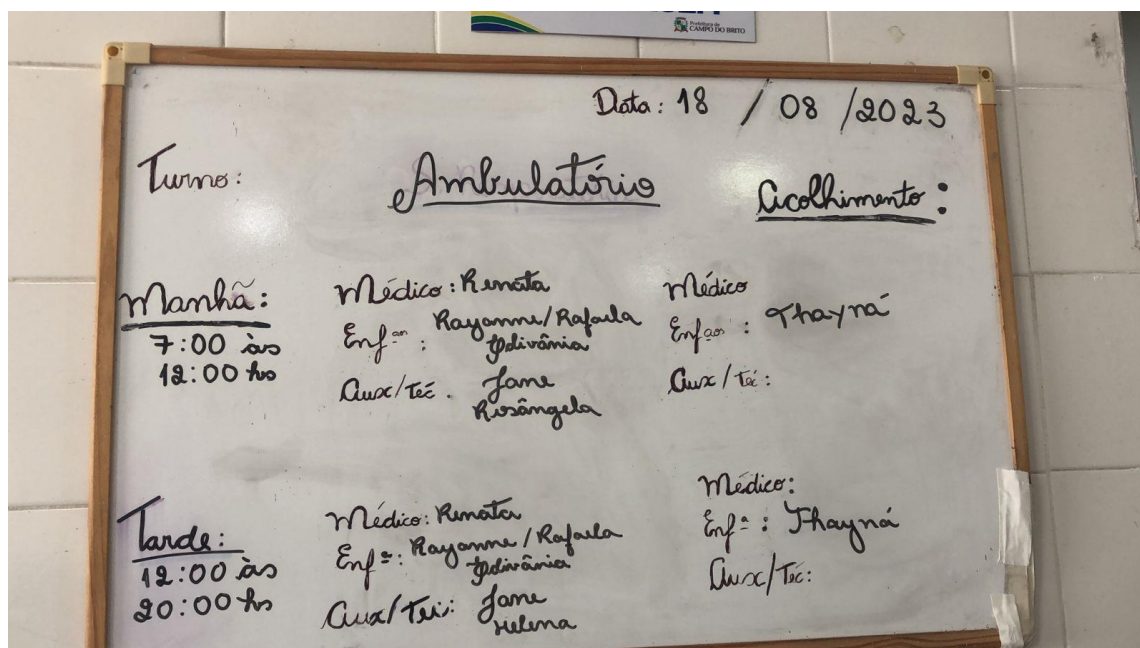 Prefeitura de
CAMPO DO BRITO
Data: 18 / 08 /2023
Turno:
Ambulatório
Acolhimento:
Manhã:
7:00 às
12:00 hs
Médico: Renata
Enfªˢ: Rayanne/Rafaela
Edivânia
Aux/Téc. Jane
Rosângela
Médico
Enfªˢ: Thayná
Aux/Téc:
Tarde:
12:00 às
20:00 hs
Médico: Renata
Enfª: Rayanne/Rafaela
Edivânia
Aux/Téc: Jane
Helena
Médico:
Enfª: Thayná
Aux/Téc: